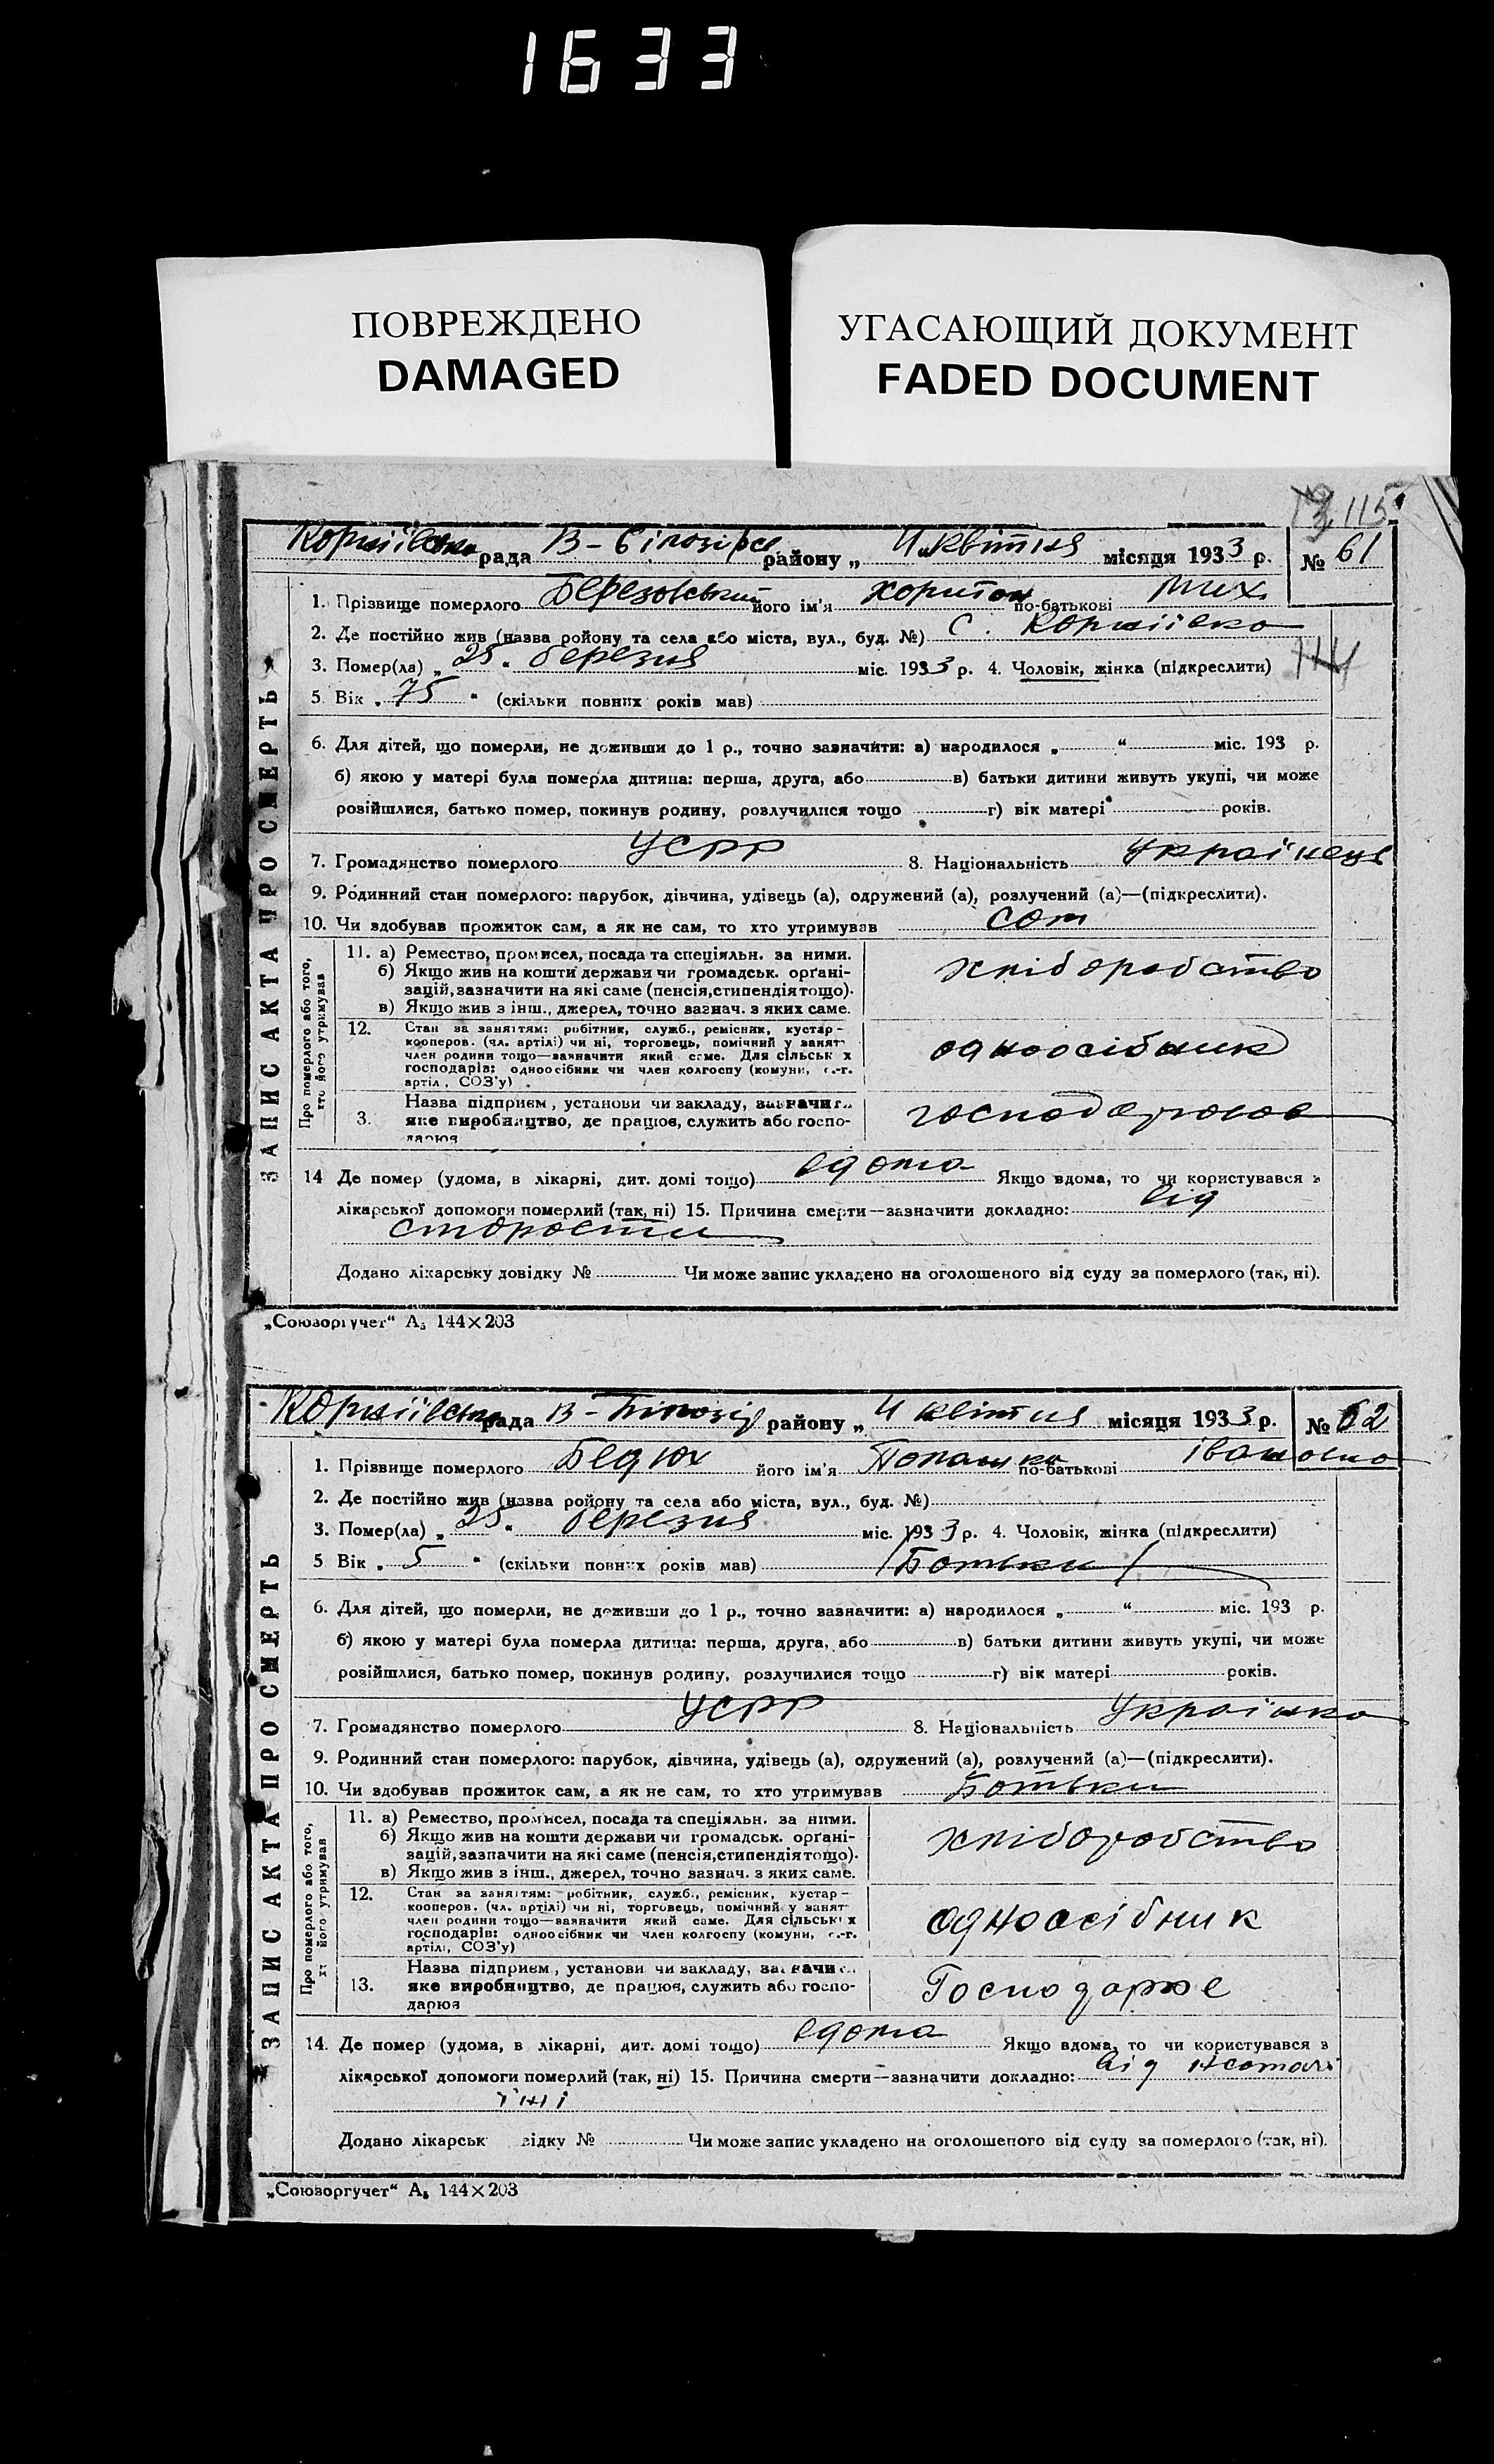 1633
ПОВРЕЖДЕНО
DAMAGED
УГАСАЮЩИЙ ДОКУМЕНТ
FADED DOCUMENT
115
рада В- району „ 4 квітня місяця 1933 р. № 61
ЗАПИС АКТА ПРО СМЕРТЬ
1. Прізвище померлого Березовський його ім'я Харитон по-батькові Мих
2. Де постійно жив (назва ройону та села або міста, вул., буд. №) С.
3. Помер(ла) „ 25 “ березня міс. 1933 р. 4. Чоловік, жінка (підкреслити)
114
5. Вік „ 75 “ (скільки повних років мав)
6. Для дітей, що померли, не доживши до 1 р., точно зазначити: а) народилося „ “ міс. 193 р.
б) якою у матері була померла дитина: перша, друга, або в) батьки дитини живуть укупі, чи може
розійшлися, батько помер, покинув родину, розлучилися тощо г) вік матері років.
7. Громадянство померлого УСРР 8. Національність Українець
9. Родинний стан померлого: парубок, дівчина, удівець (а), одружений (а), розлучений (а)—(підкреслити).
10. Чи здобував прожиток сам, а як не сам, то хто утримував сам
Про померлого або того, хто його утримував
11. а) Ремество, промисел, посада та спеціяльн. за ними.
б) Якщо жив на кошти держави чи громадськ. орґані-
зацій, зазначити на які саме (пенсія, стипендія тощо).
в) Якщо жив з інш., джерел, точно зазнач. з яких саме.
хліборобство
12. Стан за заняттям: робітник, служб., ремісник, кустар-
кооперов. (чл. артілі) чи ні, торговець, помічний у занят-
член родини тощо—зазначити який саме. Для сільськ х
господарів: одноосібник чи член колгоспу (комуни, с.-г.
артіл, СОЗ'у)
одноосібник
3. Назва підприєм, установи чи закладу, зазначити
яке виробництво, де працює, служить або госпо-
дарює
господарює
14 Де помер (удома, в лікарні, дит. домі тощо) вдома Якщо вдома, то чи користувався з
лікарської допомоги померлий (так, ні) 15. Причина смерти—зазначити докладно: від
старости
Додано лікарську довідку № Чи може запис укладено на оголошеного від суду за померлого (так, ні).
„Союзоргучет“ А₅ 144×203
рада В- району „ 4 квітня місяця 1933 р. № 62
ЗАПИС АКТА ПРО СМЕРТЬ
1. Прізвище померлого Бедюх його ім'я Палашка по-батькові Івановна
2. Де постійно жив (назва ройону та села або міста, вул., буд. №)
3. Помер(ла) „ 25 “ березня міс. 1933 р. 4. Чоловік, жінка (підкреслити)
5 Вік „ 5 “ (скільки повних років мав) /Батьки/
6. Для дітей, що померли, не доживши до 1 р., точно зазначити: а) народилося „ “ міс. 193 р.
б) якою у матері була померла дитина: перша, друга, або в) батьки дитини живуть укупі, чи може
розійшлися, батько помер, покинув родину, розлучилися тощо г) вік матері років.
7. Громадянство померлого УСРР 8. Національність Українка
9. Родинний стан померлого: парубок, дівчина, удівець (а), одружений (а), розлучений (а)—(підкреслити).
10. Чи здобував прожиток сам, а як не сам, то хто утримував Батьки
Про померлого або того, хт його утримував
11. а) Ремество, промисел, посада та спеціяльн. за ними.
б) Якщо жив на кошти держави чи громадськ. орґані-
зацій, зазначити на які саме (пенсія, стипендія тощо).
в) Якщо жив з інш., джерел, точно зазнач. з яких саме.
хліборобство
12. Стан за заняттям: робітник, служб., ремісник, кустар-
кооперов. (чл. артілі) чи ні, торговець, помічний у занят-
член родини тощо—зазначити який саме. Для сільськ х
господарів: одноосібник чи член колгоспу (комуни, с.-г.
артілі, СОЗ'у)
одноосібник
13. Назва підприєм, установи чи закладу, зазначи
яке виробництво, де працює, служить або госпо-
дарює
Господарює
14. Де помер (удома, в лікарні, дит. домі тощо) вдома Якщо вдома, то чи користувався з
лікарської допомоги померлий (так, ні) 15. Причина смерти—зазначити докладно: від
Додано лікарськ відку № Чи може запис укладено на оголошеного від суду за померлого (так, ні).
„Союзоргучет“ А₅ 144×203